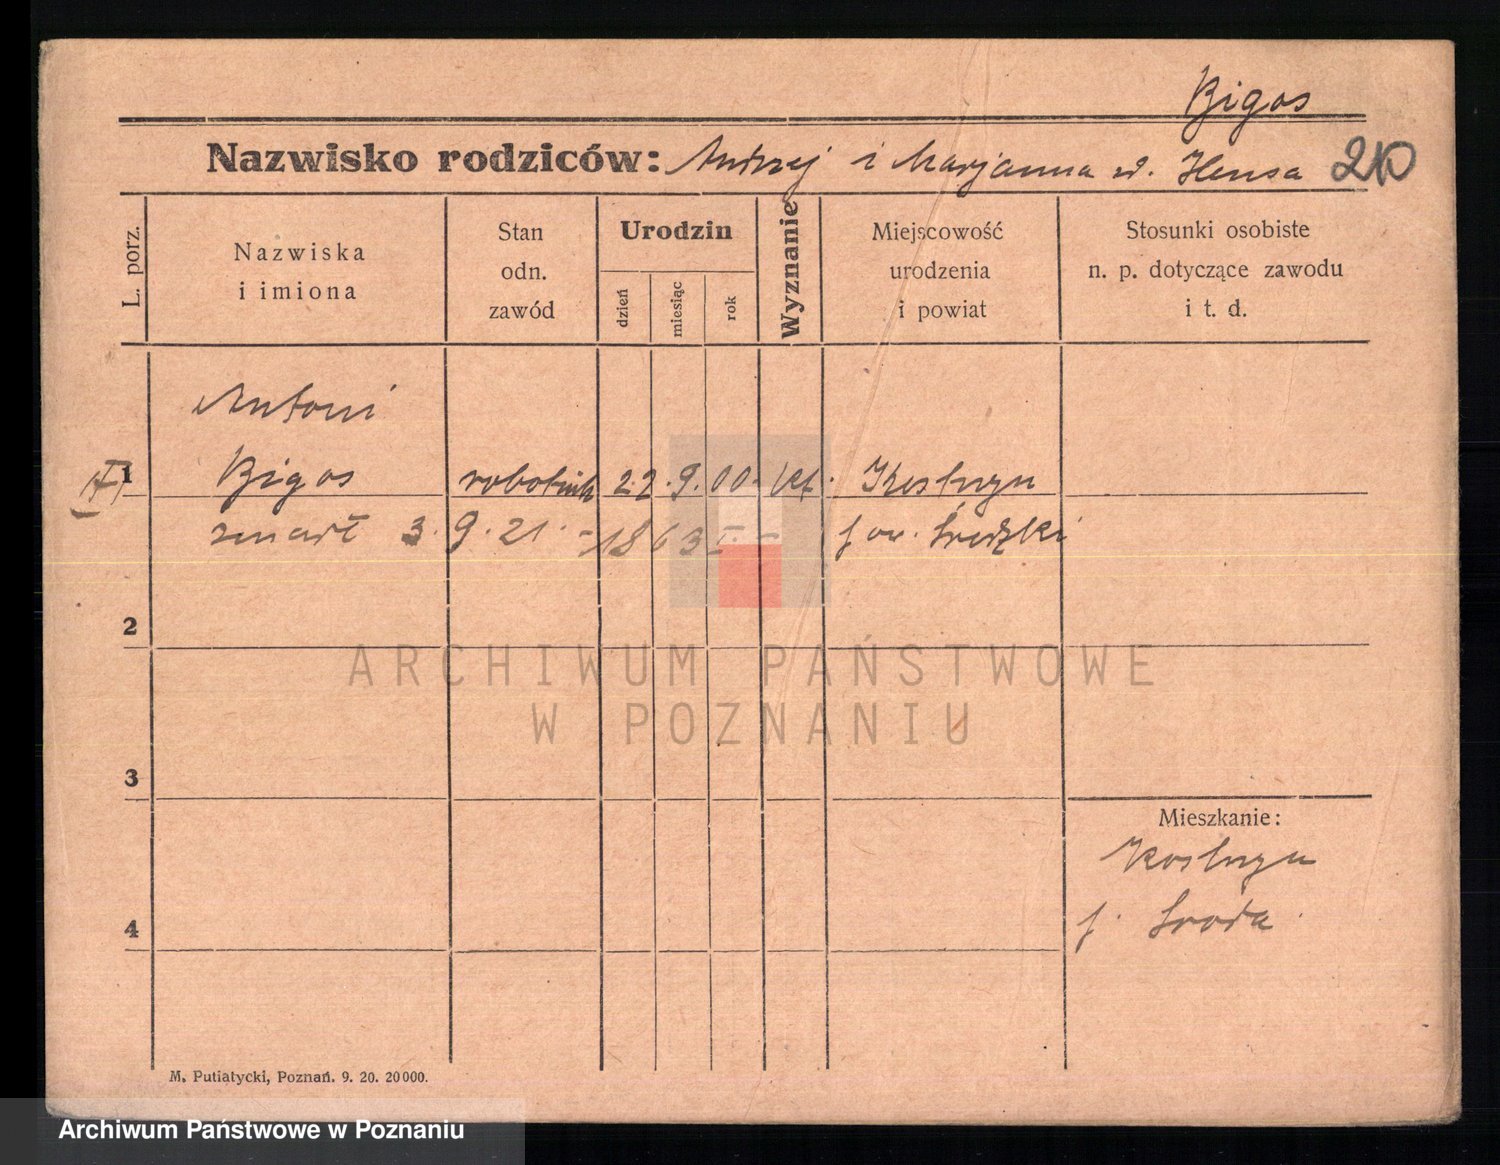 Bigos
Nazwisko rodziców: Andrzej i Marjanna z d. Hensa 210
L. porz.
Nazwiska
i imiona
Stan
odn.
zawód
Urodzin
dzień
miesiąc
rok
Wyznanie
Miejscowość
urodzenia
i powiat
Stosunki osobiste
n. p. dotyczące zawodu
i t. d.
Antoni
1 Bigos robotnik 22. 9. 00. kt. Kostrzyn
zmarł 3. 9. 21. - 1863 I. - pow. Średzki
2
3
Mieszkanie:
Kostrzyn
4 p. Środa
M. Putiatycki, Poznań. 9. 20. 20000.
ARCHIWUM PAŃSTWOWE
W POZNANIU
Archiwum Państwowe w Poznaniu